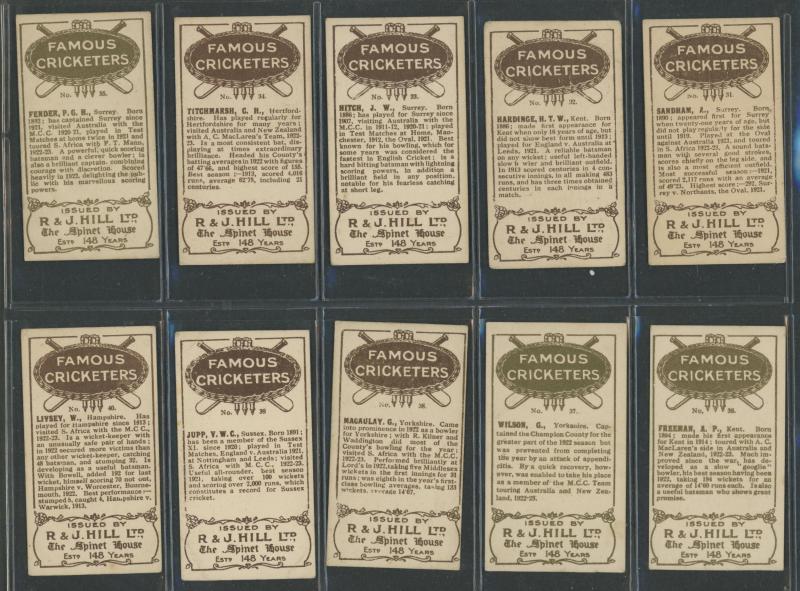 FAMOUS
CRICKETERS
No. 35.
FENDER, P. G. H., Surrey. Born
1892; has captained Surrey since
1921, visited Australia with the
M.C.C. 1920-21, played in Test
Matches at home twice in 1921 and
toured S. Africa with F. T. Mann,
1922-23. A powerful, quick scoring
batsman and a clever bowler; is
also a brilliant captain, combining
courage with discretion. Scored
heavily in 1922, delighting the pub-
lic with his marvellous scoring
powers.
ISSUED BY
R & J. HILL LTD.
The Spinet House
ESTD 148 YEARS
FAMOUS
CRICKETERS
No. 34.
TITCHMARSH, C. H., Hertford-
shire. Has played regularly for
Hertfordshire for many years;
visited Australia and New Zealand
with A. C. MacLaren's Team, 1922-
23. Is a most consistent bat, dis-
playing at times extraordinary
brilliance. Headed his County's
batting averages in 1922 with figures
of 47'66, and highest score of 155.
Best season:—1913, scored 4,016
runs, average 82'75, including 21
centuries.
ISSUED BY
R & J. HILL LTD.
The Spinet House
ESTD 148 YEARS
FAMOUS
CRICKETERS
No. 33.
HITCH, J. W., Surrey. Born
1886; has played for Surrey since
1907, visiting Australia with the
M.C.C. in 1911-12, 1920-21; played
in Test Matches at Home, Man-
chester, 1912, the Oval, 1921. Best
known for his bowling, which for
some years was considered the
fastest in English Cricket; is a
hard hitting batsman with lightning
scoring powers, in addition a
brilliant field in any position,
notable for his fearless catching
at short leg.
ISSUED BY
R & J. HILL LTD.
The Spinet House
ESTD 148 YEARS
FAMOUS
CRICKETERS
No. 32.
HARDINGE, H. T. W., Kent. Born
1886; made first appearance for
Kent when only 16 years of age, but
did not show best form until 1913;
played for England v. Australia at
Leeds, 1921. A reliable batsman
on any wicket; useful left-handed
slow bowler and brilliant outfield.
In 1913 scored centuries in 4 con-
secutive innings, in all making 483
runs, and has three times obtained
centuries in each innings in a
match.
ISSUED BY
R & J. HILL LTD.
The Spinet House
ESTD 148 YEARS
FAMOUS
CRICKETERS
No. 31.
SANDHAM, A., Surrey. Born
1890; appeared first for Surrey
when twenty-one years of age, but
did not play regularly for the side
until 1919. Played at the Oval
against Australia, 1921, and toured
in S. Africa 1922-23. A sound bats-
man with several good strokes,
scores chiefly on the leg side, and
is also a most efficient outfield.
Most successful season:—1921,
scored 2,117 runs with an average
of 49'23. Highest score:—292, Sur-
rey v. Northants, the Oval, 1921.
ISSUED BY
R & J. HILL LTD.
The Spinet House
ESTD 148 YEARS
FAMOUS
CRICKETERS
No. 40.
LIVSEY, W., Hampshire. Has
played for Hampshire since 1913;
visited S. Africa with the M.C.C.,
1922-23. Is a wicket-keeper with
an unusually safe pair of hands;
in 1922 secured more victims than
any other wicket-keeper, catching
48 batsman, and stumping 32. Is
developing as a useful batsman.
With Bowell, added 192 for last
wicket, himself scoring 70 not out,
Hampshire v. Worcester, Bourne-
mouth, 1922. Best performance:—
stumped 5, caught 4, Hampshire v.
Warwick, 1913.
ISSUED BY
R & J. HILL LTD.
The Spinet House
ESTD 148 YEARS
FAMOUS
CRICKETERS
No. 39
JUPP, V. W. C., Sussex. Born 1891;
has been a member of the Sussex
XI. since 1920; played in Test
Matches, England v. Australia 1921,
at Nottingham and Leeds; visited
S. Africa with M.C.C., 1922-23.
Useful all-rounder, best season
1921, taking over 100 wickets
and scoring over 2,000 runs, which
constitutes a record for Sussex
cricket.
ISSUED BY
R & J. HILL LTD.
The Spinet House
ESTD 148 YEARS
FAMOUS
CRICKETERS
No. 38.
MACAULAY, G., Yorkshire. Came
into prominence in 1922 as a bowler
for Yorkshire; with R. Kilner and
Waddington did most of the
County's bowling for the year;
visited S. Africa with the M.C.C.,
1922-23. Performed brilliantly at
Lord's in 1922, taking five Middlesex
wickets in the first innings for 31
runs; was eighth in the year's first-
class bowling averages, taking 133
wickets, average 14'67.
ISSUED BY
R & J. HILL LTD.
The Spinet House
ESTD 148 YEARS
FAMOUS
CRICKETERS
No. 37.
WILSON, G., Yorkshire. Cap-
tained the Champion County for the
greater part of the 1922 season but
was prevented from completing
the year by an attack of appendi-
citis. By a quick recovery, how-
ever, was enabled to take his place
as a member of the M.C.C. Team
touring Australia and New Zea-
land, 1922-23.
ISSUED BY
R & J. HILL LTD.
The Spinet House
ESTD 148 YEARS
FAMOUS
CRICKETERS
No. 36.
FREEMAN, A. P., Kent. Born
1894; made his first appearance
for Kent in 1914; toured with A. C.
MacLaren's side in Australia and
New Zealand, 1922-23. Much im-
proved since the war, has de-
veloped as a slow googlie
bowler, his best season having been
1922, taking 194 wickets for an
average of 14'60 runs each. Is also
a useful batsman who shows great
promise.
ISSUED BY
R & J. HILL LTD.
The Spinet House
ESTD 148 YEARS